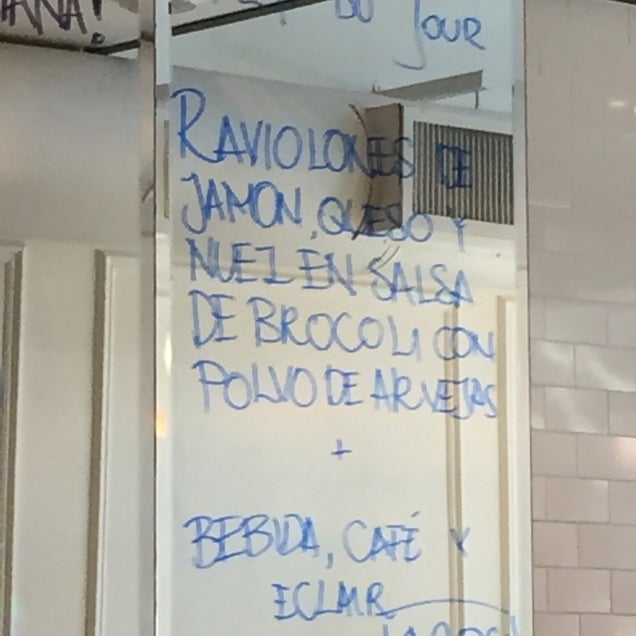 DU JOUR
RAVIOLONES DE
JAMON, QUESO Y
NUEZ EN SALSA
DE BROCOLI CON
POLVO DE ARVEJAS
+
BEBIDA, CAFÉ Y
ECLAIR